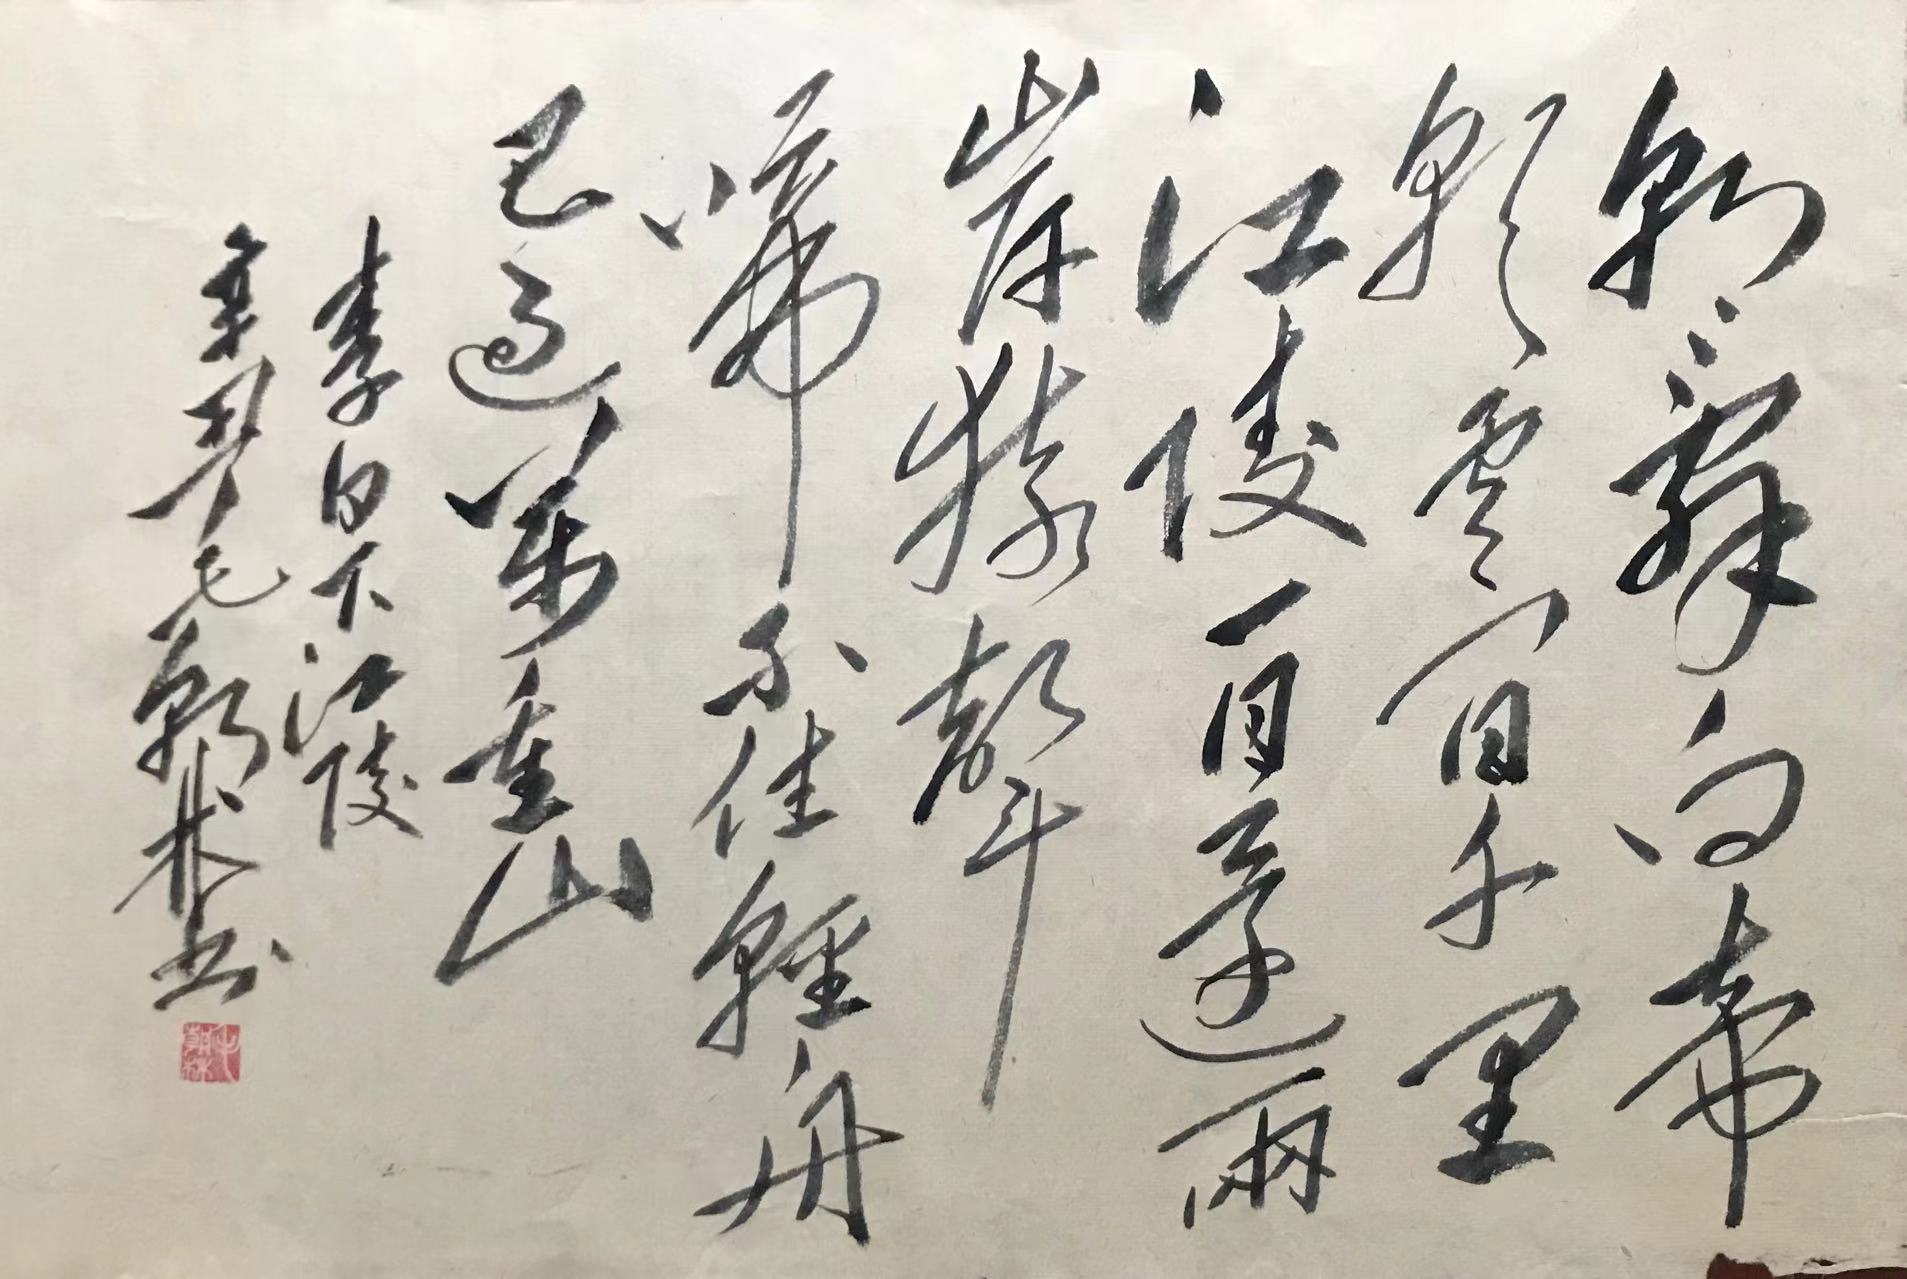 朝辭白帝
彩雲間千里
江陵一日還兩
岸猿聲
啼不住輕舟
已過萬重山
李白下江陵
辛丑毛朝林书
毛朝林